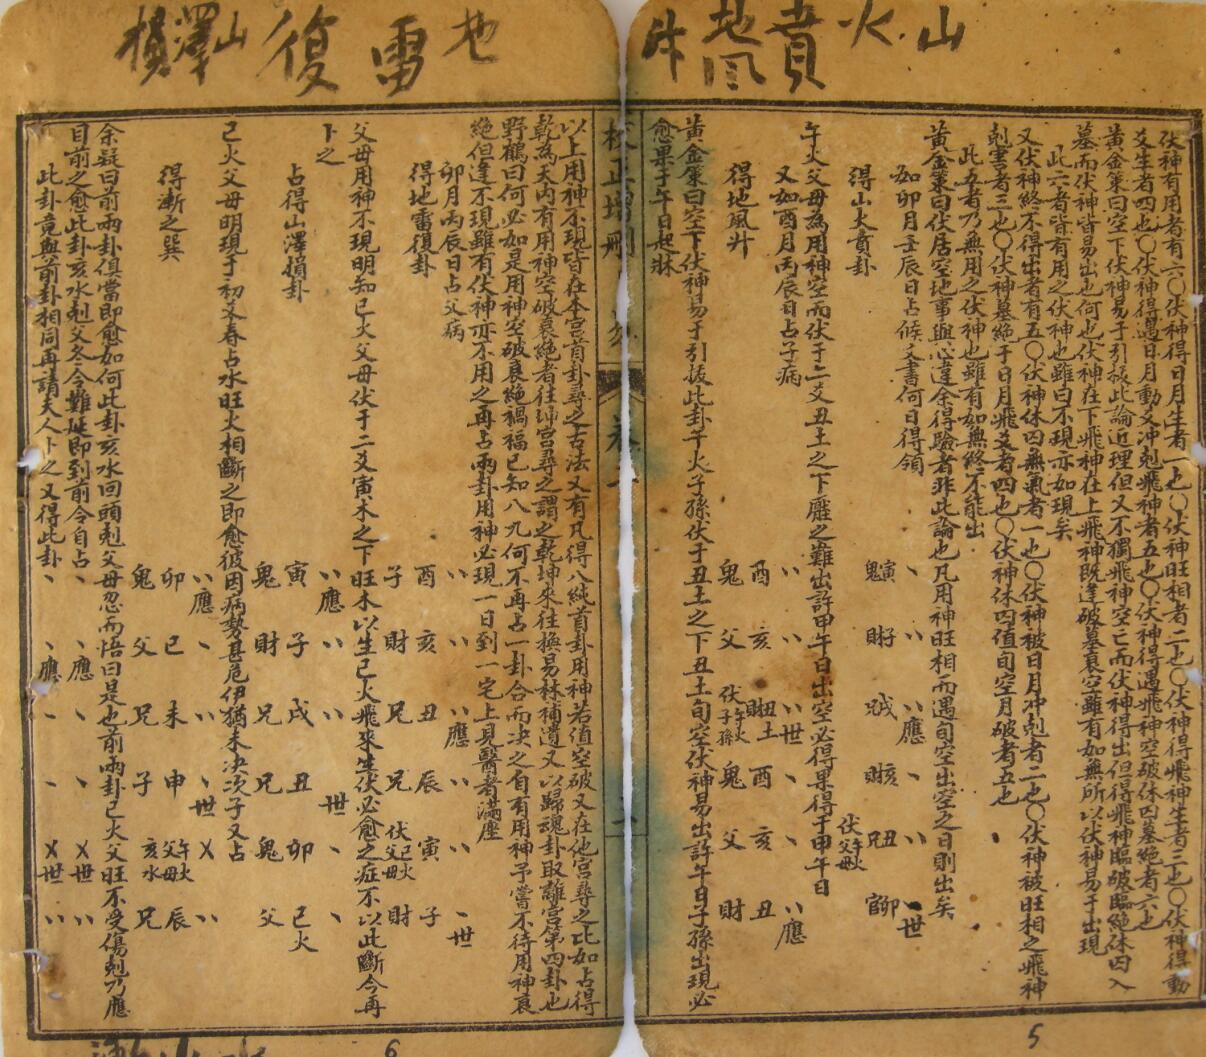 山火賁
地風升
伏神有用者有六〇伏神得日月生者一也〇伏神旺相者二也〇伏神得飛神生者三也〇伏神得動
爻生者四也〇伏神得遇日月動爻冲剋飛神者五也〇伏神得遇飛神空破休囚墓絕者六也
黃金策曰空下伏神易于引拔此論近理但又不獨飛神空亡而伏神得出但得飛神臨破臨絕休囚入
墓而伏神皆易出也何也伏神在下飛神在上飛神既逢破墓衰空雖有如無所以伏神易于出現
此六者皆有用之伏神也雖曰不現亦如現矣
又伏神終不得出者有五〇伏神休囚無氣者一也〇伏神被日月冲剋者二也〇伏神被旺相之飛神
剋害者三也〇伏神墓絕于日月飛爻者四也〇伏神休囚值旬空月破者五也
此五者乃無用之伏神也雖有如無終不能出
黃金策曰伏居空地事與心違余得驗者非此論也凡用神旺相而遇旬空出空之日則出矣
如卯月壬辰日占候文書何日得領
得山火賁卦
應 世
寅鬼 子財 戌兄 亥財 丑兄 卯官
伏午火父母
午火父母為用神空而伏于二爻丑土之下壓之難出許甲午日出空必得果得于甲午日
又如酉月丙辰日占子病
得地風升
世 應
酉 亥 丑土 酉 亥 丑
鬼 父 財 鬼 父 財
伏午火子孫
黃金策曰空下伏神易于引拔此卦午火子孫伏于丑土之下丑土旬空伏神易出許午日子孫出現必
愈果于午日起牀
5
地雷復
山澤損
以上用神不現皆在本宮首卦尋之古法又有凡得八純首卦用神若值空破又在他宮尋之比如占得
乾為天內有用神空破衰絕者往坤宮尋之謂之乾坤來往換易林補遺又以歸魂卦取離宮第四卦也
野鶴曰何必如是用神空破衰絕禍福已知八九何不再占一卦合而决之自有用神予嘗不待用神衰
絕但逢不現雖有伏神亦不用之再占兩卦用神必現一日到一宅上見醫者滿座
卯月丙辰日占父病
得地雷復卦
應 世
酉 亥 丑 辰 寅 子
子 財 兄 兄 鬼 財
伏巳火父母
父母用神不現明知巳火父母伏于二爻寅木之下旺木以生巳火飛來生伏必愈之症不以此斷今再
卜之
占得山澤損卦
應 世
寅 子 戌 丑 卯 巳火
鬼 財 兄 兄 鬼 父
巳火父母明現于初爻春占水旺火相斷之即愈彼因病勢甚危伊猶未决次子又占
得漸之巽
應 世
卯 巳 未 申 午火父母 辰
鬼 父 兄 子 亥水 兄
余疑曰前兩卦俱當即愈如何此卦亥水回頭剋父母忽而悟曰是也前兩卦巳火父旺不受傷剋乃應
目前之愈此卦亥水剋父冬令難延即到前令自占
應 世
此卦竟與前卦相同再請夫人卜之又得此卦
應 世
6